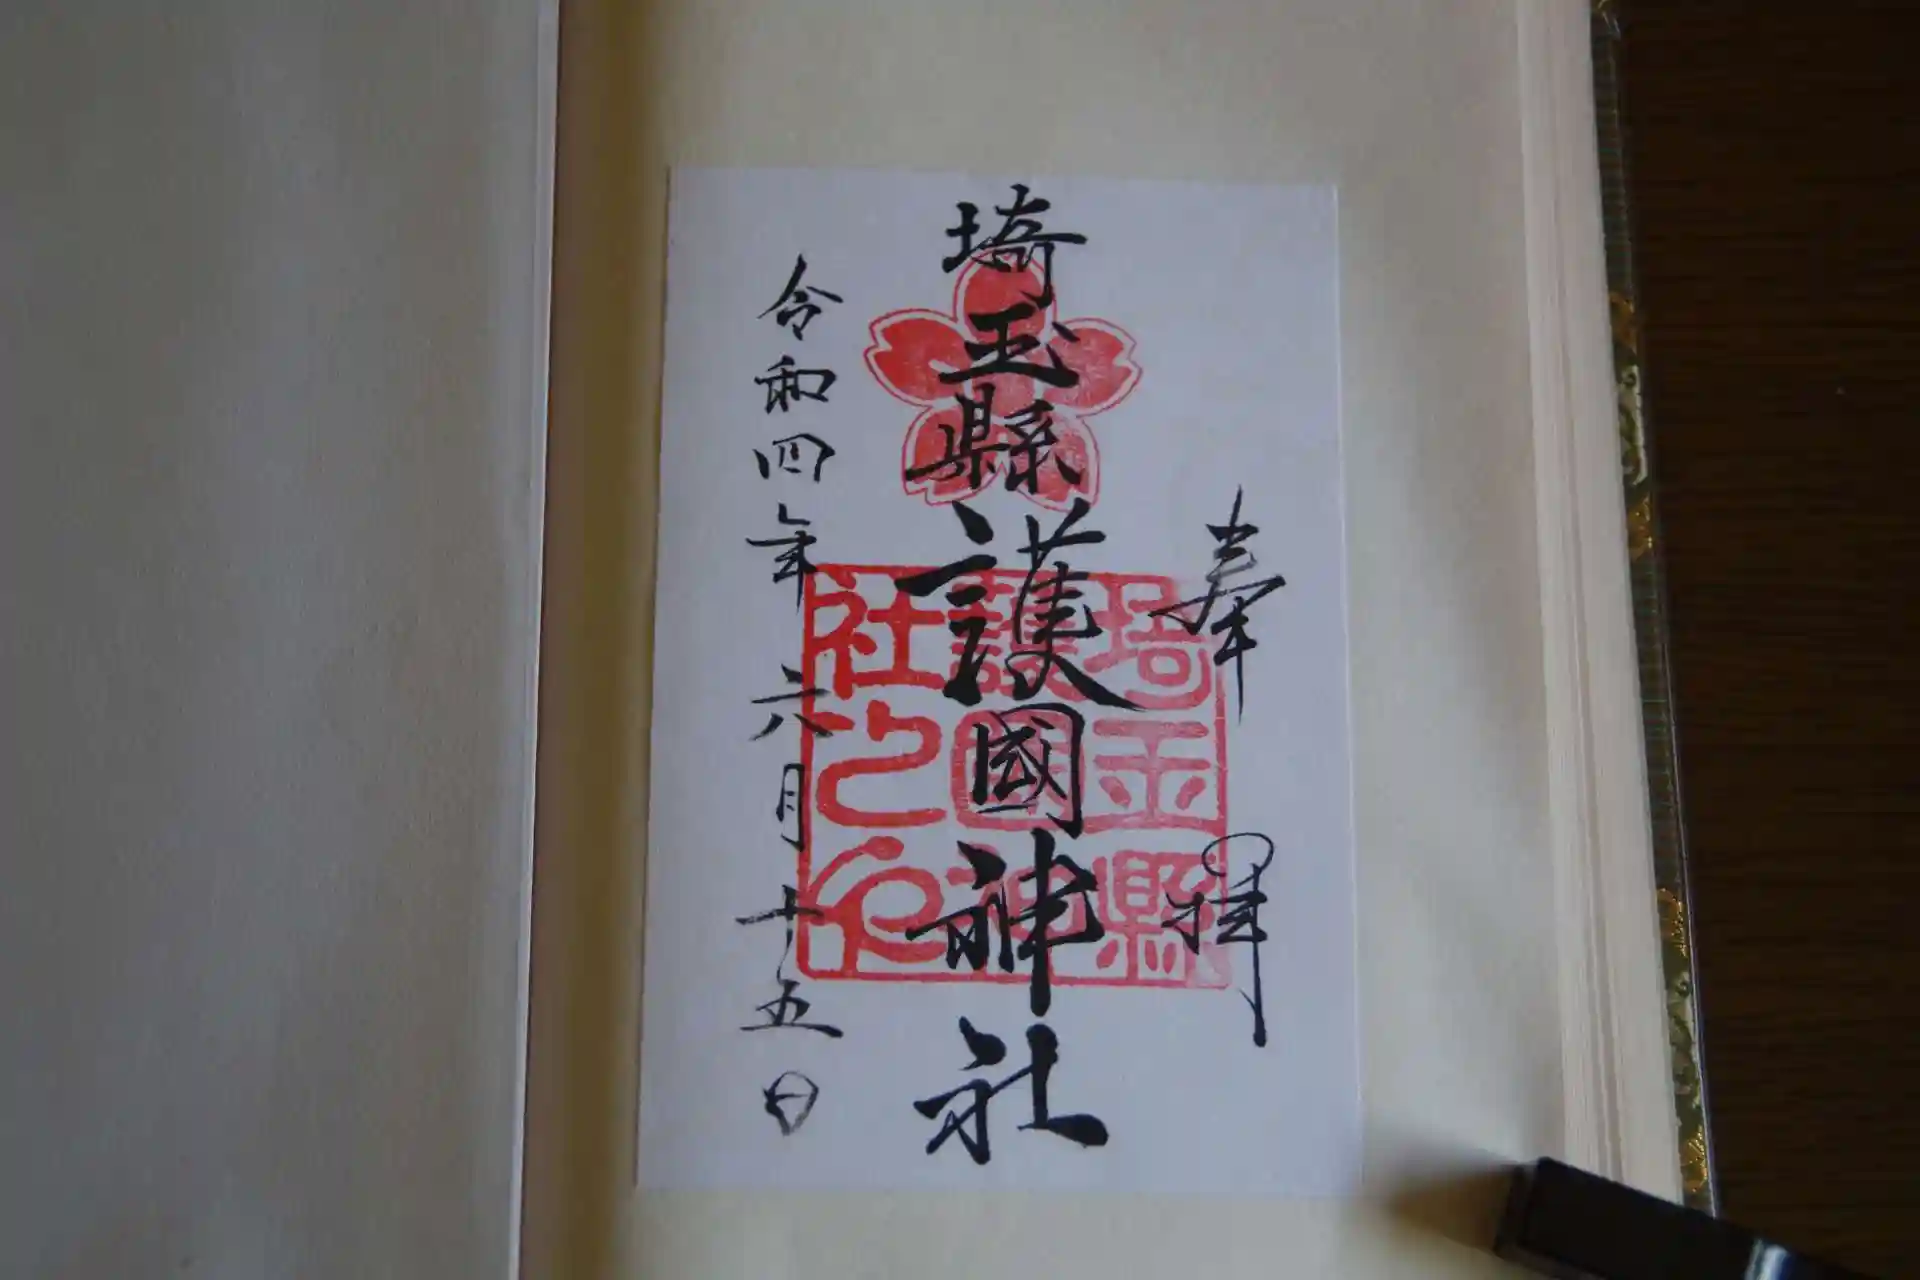 奉拝
埼玉縣護國神社
埼玉縣
護國神
社之印
令和四年六月十五日